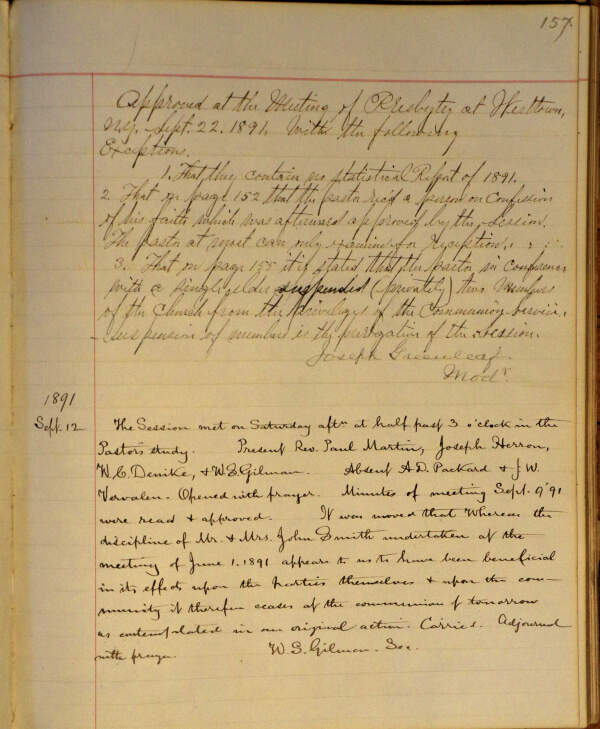 157
Approved at the Meeting of Presbytery at Westtown,
N.Y. Sept. 22. 1891. With the following
Exceptions.
1. That they contain no statistical Report of 1891.
2. That on page 152 that the pastor rec'd a person on Confession
of his faith which was afterward approved by the session.
The pastor at most can only examine for reception.
3. That on page 155 it is stated that the pastor in conference
with a single elder suspended (privately) two members
of the Church from the privileges of the Communion service.
suspension of members is the prerogative of the session.
Joseph Greenleaf
Modr.
1891
Sept. 12
The Session met on Saturday aftn at half past 3 o'clock in the
Pastor's study. Present Rev. Paul Martin, Joseph Herron,
W. C. Denike, & W. S. Gilman. Absent A. D. Packard & J. W.
Vervalen. Opened with prayer. Minutes of meeting Sept. 9 '91
were read & approved. It was moved that Whereas the
discipline of Mr. & Mrs. John Smith undertaken at the
meeting of June 1. 1891 appears to us to have been beneficial
in its effects upon the parties themselves & upon the com-
munity it therefore ceases at the communion of tomorrow
as contemplated in our original action. Carried. Adjourned
with prayer. W. S. Gilman. Sec.